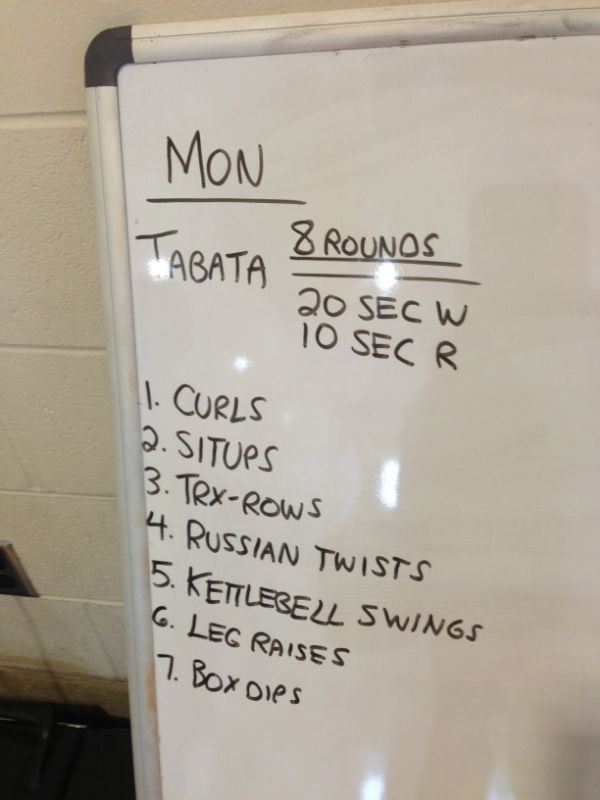 MON
TABATA 8 ROUNDS
20 SEC W
10 SEC R
1. CURLS
2. SITUPS
3. TRX-ROWS
4. RUSSIAN TWISTS
5. KETTLEBELL SWINGS
6. LEG RAISES
7. BOX DIPS